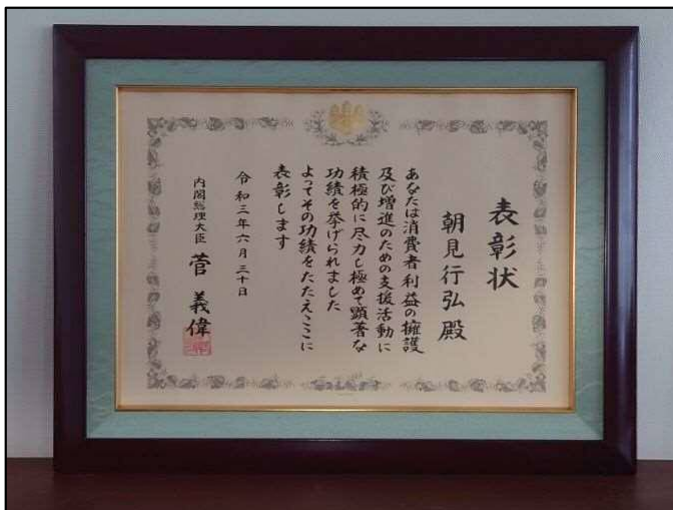 表彰状
朝見行弘殿
あなたは消費者利益の擁護
及び増進のための支援活動に
積極的に尽力し極めて顕著な
功績を挙げられました
よってその功績をたたえここに
表彰します
令和三年六月三十日
内閣総理大臣 菅義偉